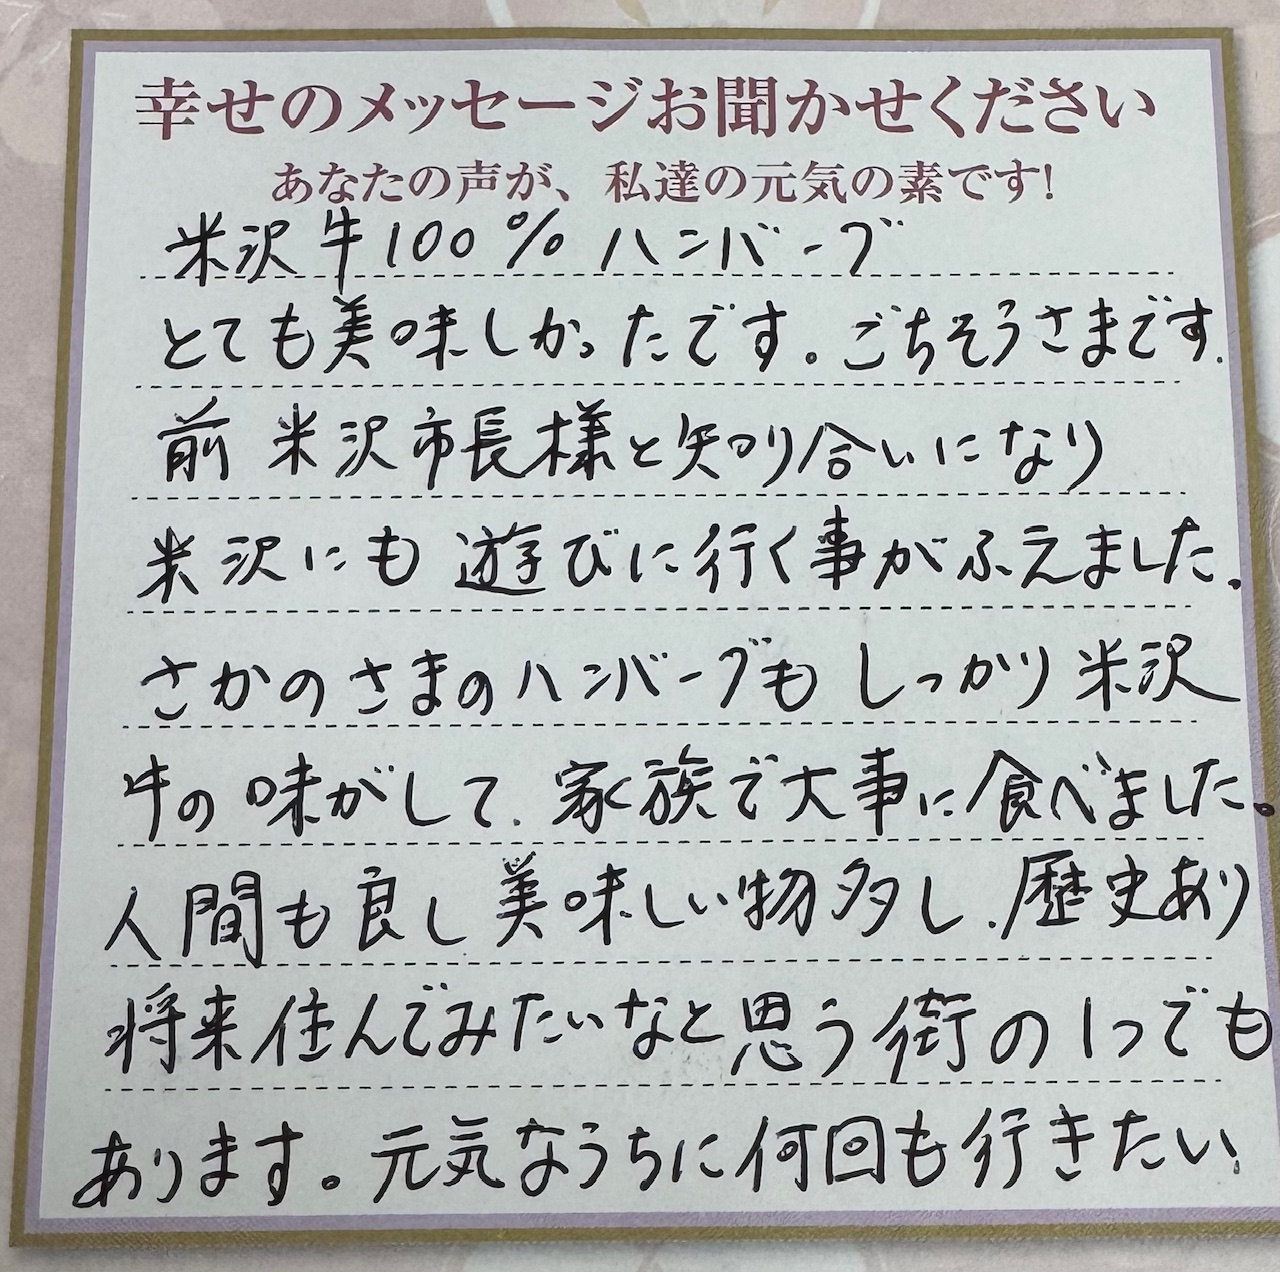 幸せのメッセージお聞かせください
あなたの声が、私達の元気の素です!
米沢牛100%ハンバーグ
とても美味しかったです。ごちそうさまです.
前米沢市長様と知り合いになり
米沢にも遊びに行く事がふえました。
さかのさまのハンバーグもしっかり米沢
牛の味がして、家族で大事に食べました。
人間も良し美味しい物多し、歴史あり
将来住んでみたいなと思う街の1つでも
あります。元気なうちに何回も行きたい、